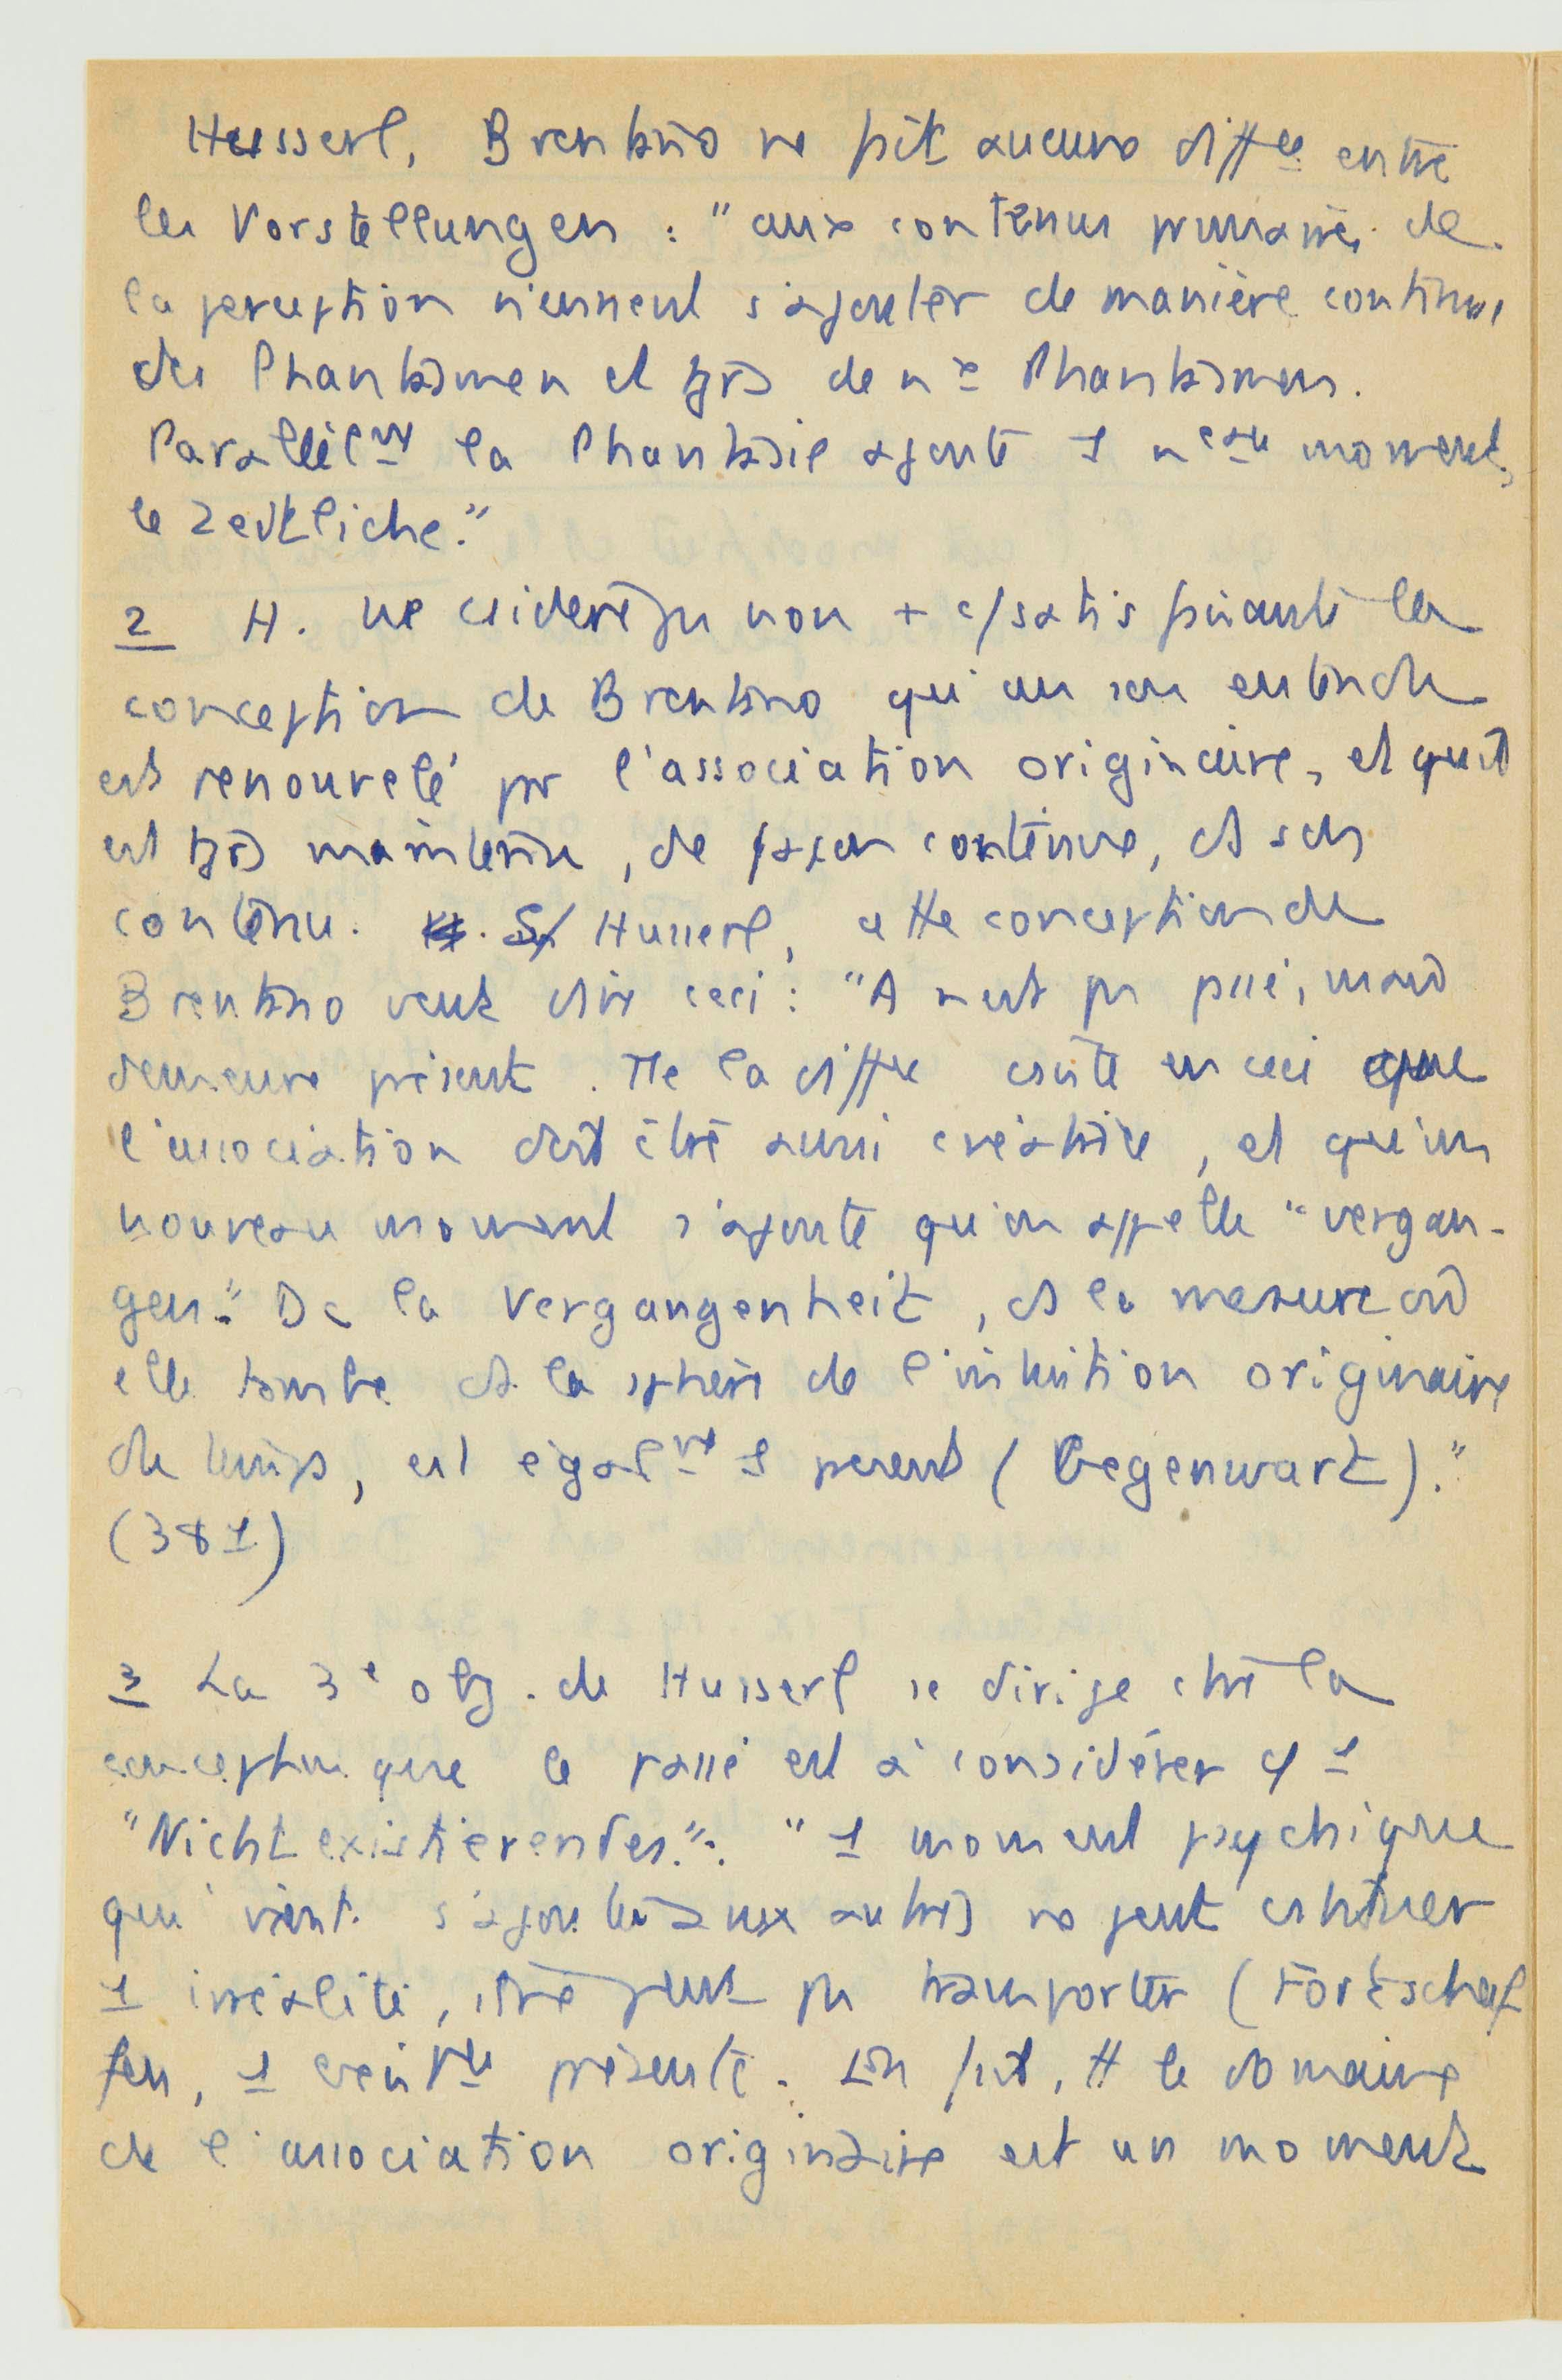 Husserl, Brentano ne fait aucune diffce entre
les Vorstellungen : "aux contenus primaires de
la perception viennent s'ajouter de manière continue
des Phantasmen et tjrs de nx Phantasmen.
Parallèlmt la Phantasie ajoute 1 neau moment,
le Zeitliche."
2 H. ne csidère pas non + c/ satisfaisante la
conception de Brentano qu'un son entendu
est renouvelé par l'association originaire, et qu'il
est tjrs maintenu, de façon continue, ds son
contenu. S/ Husserl, cette conception de
Brentano veut dire ceci : "A n'est pas passé, mais
demeure présent. Tte la diffce csiste en ceci que
l'association doit être aussi créatrice, et qu'un
nouveau moment s'ajoute qu'on appelle "vergan-
gen." Dc la Vergangenheit, ds la mesure où
elle tombe ds la sphère de l'intuition originaire
du temps, est égalmt 1 présent (Gegenwart)."
(381)
3 La 3e obj. de Husserl se dirige ctre la
conception que le passé est à considérer c/ 1
"Nichtexistierendes." : "1 moment psychique
qui vient s'ajouter aux autres ne peut cstituer
1 irréalité, et ne peut pas transporter (Fortschaf
fen, 1 présente. En fait, tt le domaine
de l'association originaire est un moment